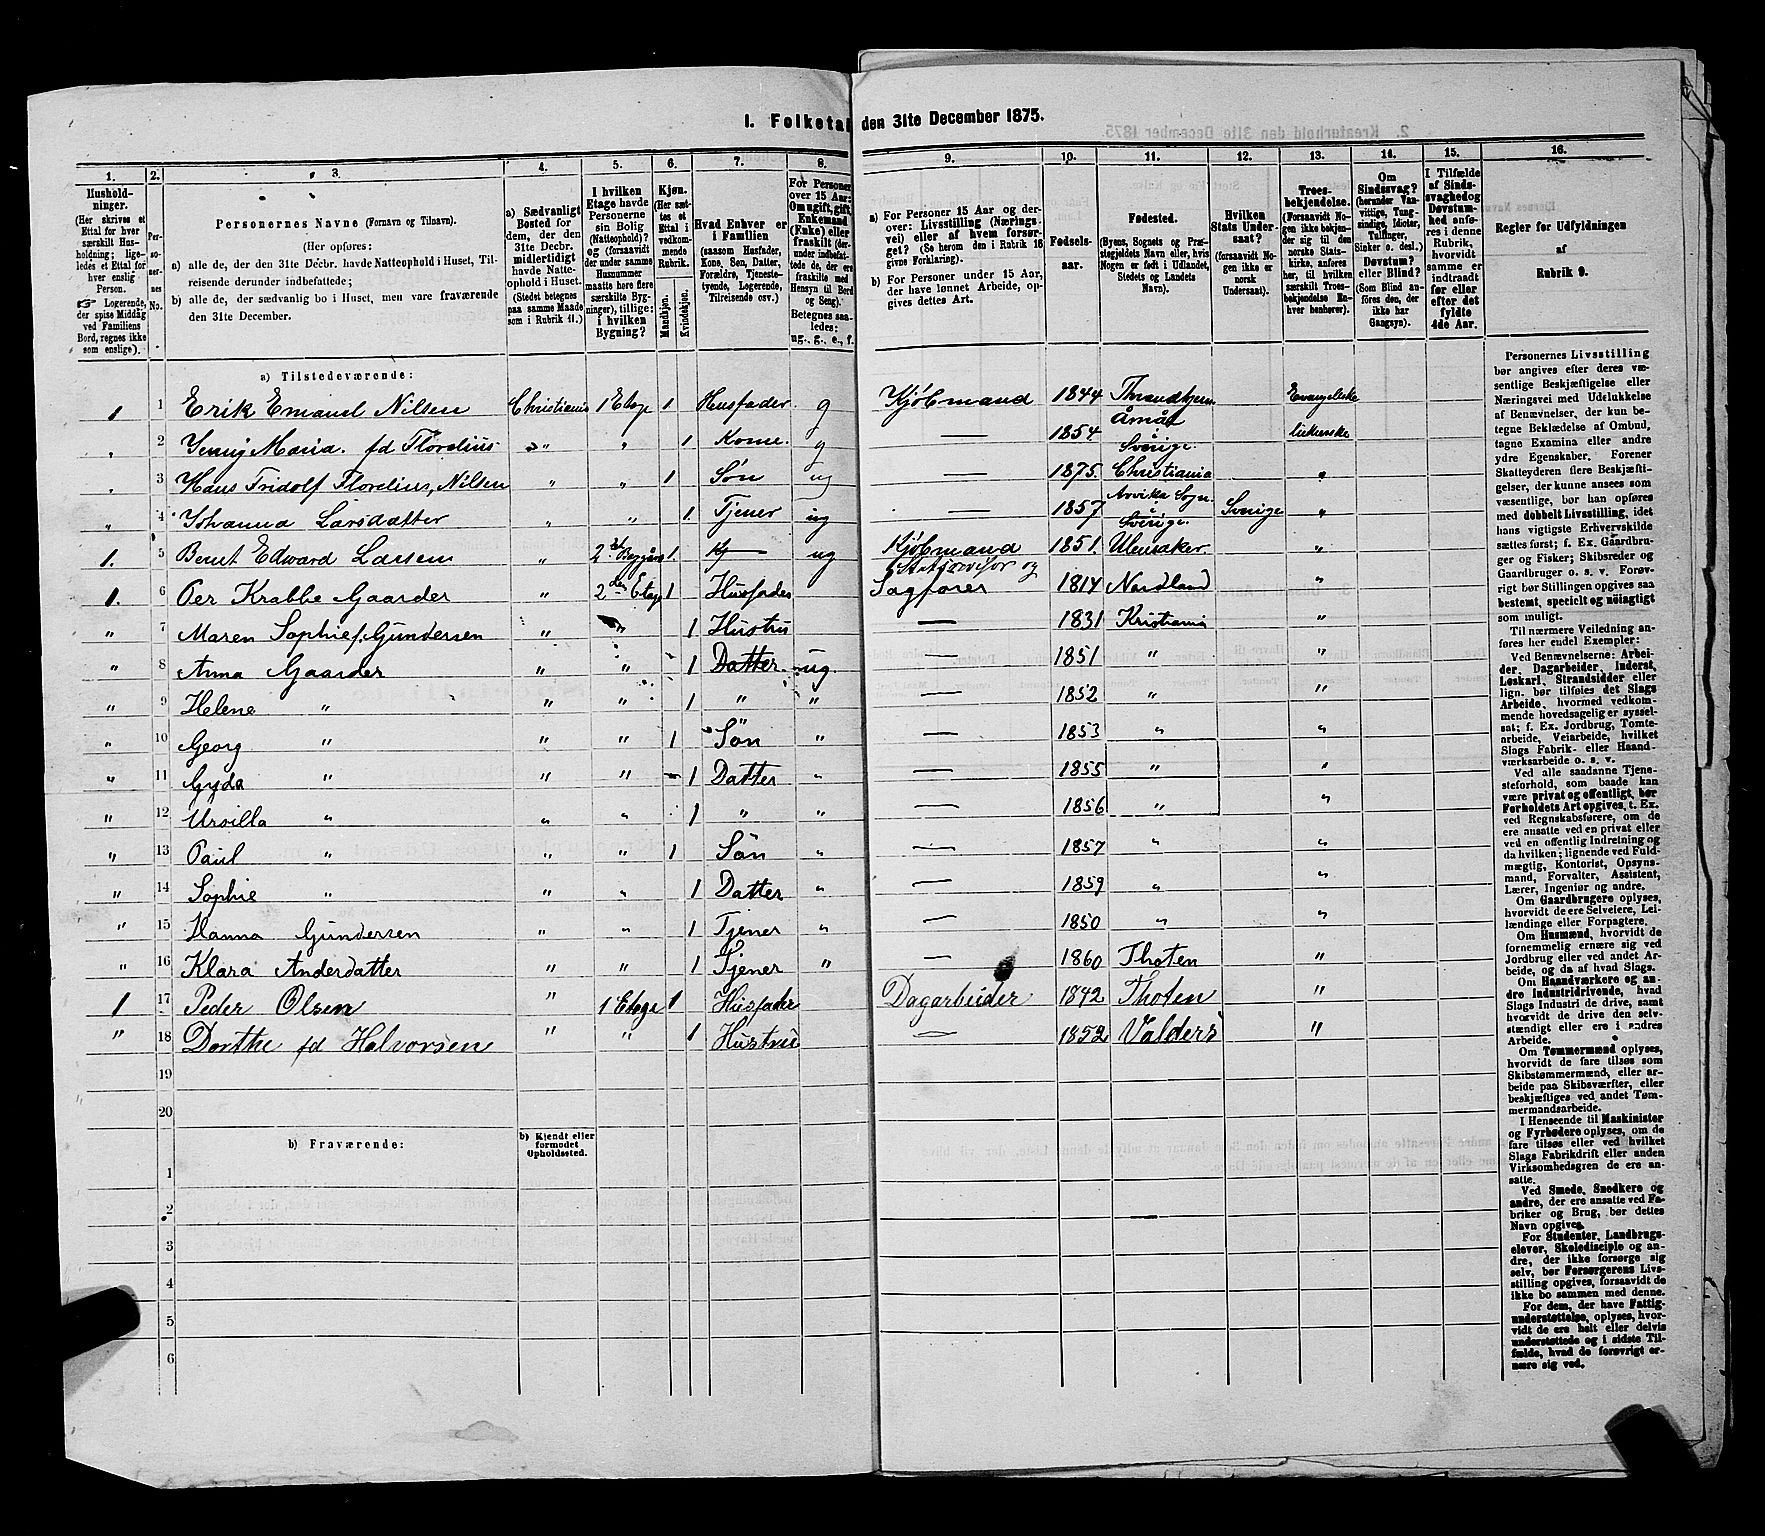 I. Folketal den 31te December 1875.
1. 2. 3. 4. 5. 6. 7. 8. 9. 10. 11. 12. 13. 14. 15. 16.
Hushold-
ninger.
(Her skrives et
Ettal for hver
særskilt Hus-
holdning; lige-
ledes et Ettal for
enslig
Person.
☞ Logerende,
der spise Middag
ved Familiens
Bord, regnes ikke
som enslige).
Per-
so-
ner-
nes
No.
Personernes Navne (Fornavn og Tilnavn).
(Her opføres:
a) alle de, der den 31te Decbr. havde Natteophold i Huset, Til-
reisende derunder indbefattede;
b) alle de, der sædvanlig bo i Huset, men vare fraværende
den 31te December.
a) Sædvanligt
Bosted for
dem, der den
31te Decbr.
midlertidigt
havde Natte-
ophold i Huset.
(Stedet betegnes
paa samme Maade
som i Rubrik 11.)
I hvilken
Etage havde
Personerne
sin Bolig
(Natteophold)?
og (forsaavidt
der under samme
Husnummer
maatte høre flere
særskilte Byg-
ninger), tillige:
i hvilken
Bygning?
Kjøn.
(Her sæt-
tes et
Ettal i
vedkom-
mende
Rubrik.
Mandkjøn.
Kvindekjøn.
Hvad Enhver er
i Familien
(saasom Husfader,
Kone, Søn, Datter,
Forældre, Tjeneste-
tyende, Logerende,
Tilreisende osv.)
For Personer
over 15 Aar:
Om ugift, gift,
Enkemand
(Enke) eller
fraskilt (der-
under indbefat-
tede de, der ere
fraskilte med
Hensyn til Bord
og Seng).
Betegnes saa-
ledes:
ug., g., e., f.
a) For Personer 15 Aar og der-
over: Livsstilling (Nærings-
vei) eller af hvem forsør-
get? (Se herom den i Rubrik 16
givne Forklaring).
b) For Personer under 15 Aar,
der have lønnet Arbeide, op-
gives dettes Art.
Fødsels-
aar.
Fødested.
(Byens, Sognets og Præ-
stegjeldets Navn eller, hvis
Nogen er født i Udlandet,
Stedets og Landets
Navn).
Hvilken
Stats Under-
saat?
(forsaavidt No-
gen ikke er
norsk
Undersaat).
Troes-
bekjendelse.
(Forsaavidt No-
gen ikke bekjen-
der sig til den
norske Stats-
kirke, anføres
her, til hvilken
særskilt Troes-
bekjendelse En-
hver henhører).
Om
Sindssvag?
(herunder Van-
vittige, Tung-
sindige, Idioter,
Tullinger,
Sinker o. desl.)
Døvstum?
eller Blind?
(Som Blind an-
føres den, der
ikke har
Gangsyn).
I Tilfælde
af Sinds-
svaghed og
Døvstum-
hed anfø-
res i denne
Rubrik,
hvorvidt
samme er
indtraadt
før eller
efter det
fyldte
4de Aar.
Regler for Udfyldningen
af
Rubrik 9.
a) Tilstedeværende:
1 1 Erik Emanuel Nilsen Christiania 1 Etage 1 Husfader. g Kjøbmand 1844 Thrandhjem Evangeliske
" 2 Jenny Maria. fd Florelius " " 1 Kone. g — 1854 Åmål Sverige. lutherske
" 3 Hans Fridolf Florelius, Nilsen " " 1 Søn ug — 1875. Christiania "
" 4 Johanna Larsdatter " " 1. Tjener ug — 1857 Arvika Sogn. Sverige. Sverige "
1. 5 Bernt Edward Larsen " 1. ug Kjøbmand 1851. Ulensaker. "
1. 6 Per Krabbe Gaarder " 2den Etage 1 Husfader og Sagfører 1814 Nordland "
" 7 Maren Sophie f. Gundersen " " 1 Hustru — 1831 Kristiania "
" 8 Anna Gaarder " " 1 Datter ug — 1851 " "
" 9 Helene " " " 1 " " — 1852 " "
" 10 Georg " " " 1 Søn " — 1853 " "
" 11 Gyda " " " 1 Datter " — 1855 " "
" 12 Ursilla " " " 1 " " — 1856 " "
" 13 Paul " " " 1 Søn " — 1857 " "
" 14 Sophie " " " 1 Datter " — 1859 " "
" 15 Hanna Gundersen " " 1 Tjener " — 1850 " "
" 16 Klara Anderdatter " " 1 Tjener " — 1860 Thoten "
1 17 Peder Olsen " 1 Etage 1 Husfader Dagarbeider 1842 Thoten "
" 18 Dorthe fd Halvorsen " " 1 Hustru — 1852 Valders "
19
20
b) Fraværende:
b) Kjendt eller
formodet
Opholdssted.
1
2
3
4
5
6
Personernes Livsstilling
bør angives efter deres væ-
sentlige Beskjæftigelse eller
Næringsvei med Udelukkelse
af Benævnelser, der kun be-
tegne Beklædelse af Ombud,
tagne Examina eller andre
ydre Egenskaber. Forener
Skatteyderen flere Beskjæfti-
gelser, der kunne ansees som
væsentlige, bør han opføres
med dobbelt Livsstilling, idet
hans vigtigste Erhvervskilde
sættes først; f. Ex. Gaardbru-
ger og Fisker; Skibsreder og
Gaardbruger o. s. v. Forøv-
rigt bør Stillingen opgives saa
bestemt, specielt og nøiagtigt
som muligt.
Til nærmere Veiledning an-
føres her endel Exempler:
Ved Benævnelserne: Arbei-
der, Dagarbeider, Inderst,
Løskarl, Strandsidder eller
lign. bør tilføies det Slags
Arbeide, hvormed vedkom-
mende hovedsagelig er syssel-
sat; f. Ex. Jordbrug, Tomte-
arbeide, Veiarbeide, hvilket
Slags Fabrik- eller Haand-
værksarbeide o. s. v.
Ved alle saadanne Tjene-
steforhold, som baade kan
være privat og offentligt, bør
Forholdets Art opgives, t. Ex.
ved Regnskabsførere, om de
ere ansatte ved en privat eller
ved en offentlig Indretning og
da hvilken; lignende ved Fuld-
mægtig, Kontorist, Opsyns-
mand, Forvalter, Assistent,
Lærer, Ingeniør og andre.
Om Gaardbrugere oplyses,
hvorvidt de ere Selveiere, Lei-
lændinge eller Forpagtere.
Om Husmænd, hvorvidt de
fornemmelig ernære sig ved
Jordbrug eller ved andet Ar-
beide, og da af hvad Slags.
Om Haandværkere og an-
dre Industridrivende, hvad
Slags Industri de drive, samt
hvorvidt de drive den selv-
stændigt eller ere i andres
Arbeide.
Om Tømmermænd oplyses,
hvorvidt de fare tilsøs som
Skibstømmermænd, eller ar-
beide paa Skibsværfter, eller
beskjæftiges ved andet Tøm-
mermandsarbeide.
I Henseende til Maskinister
og Fyrbødere oplyses, om de
fare tilsøs eller ved hvilket
Slags Fabrikdrift eller anden
Virksomhedsgren de ere an-
satte.
Ved Smede, Snedkere og
andre, der ere ansatte ved Fa-
briker og Brug, bør dettes
Navn opgives.
For Studenter, Landbrugs-
elever, Skoledisciple og an-
dre, der ikke forsørge sig
selv, bør Forsørgerens Livs-
stilling opgives, forsaavidt de
ikke bo sammen med denne.
For dem, der have Fattig-
understøttelse, oplyses, hvor-
vidt de ere helt eller delvis
understøttede og i sidste Til-
fælde, hvad de forøvrigt er-
nære sig ved.